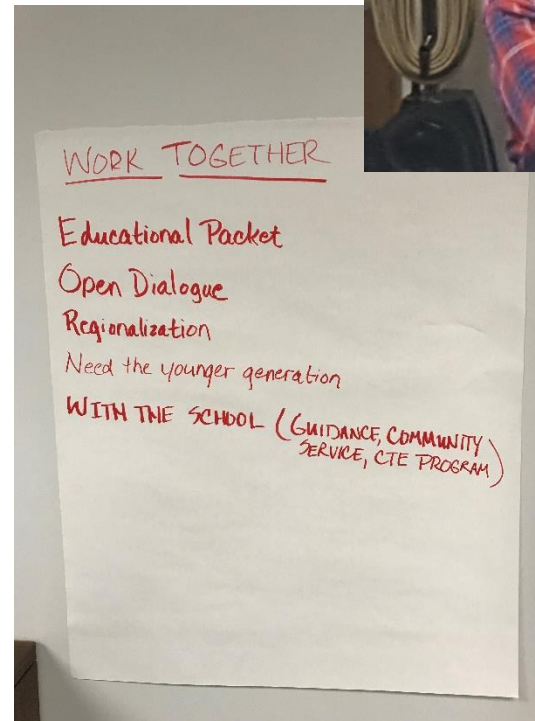 WORK TOGETHER
Educational Packet
Open Dialogue
Regionalization
Need the younger generation
WITH THE SCHOOL (GUIDANCE, COMMUNITY
SERVICE, CTE PROGRAM)